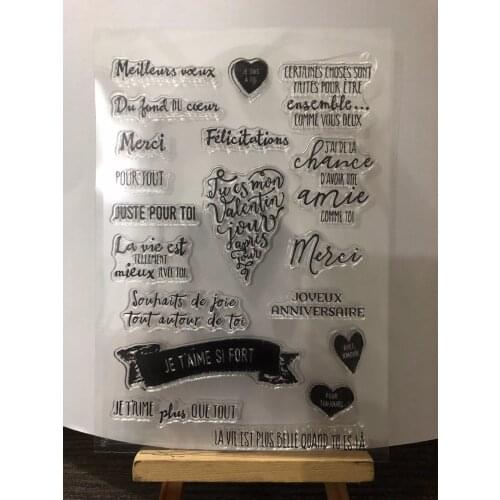 Meilleurs vœux
JE SUIS
À TOI
CERTAINES CHOSES SONT
FAITES POUR ÊTRE
ensemble...
COMME VOUS DEUX
Du fond DU cœur
Merci
Félicitations
J'AI DE LA
chance
D'AVOIR UNE
amie
COMME TOI
POUR TOUT
Tu es mon
Valentin
jour
après
jour
JUSTE POUR TOI
La vie est
TELLEMENT
mieux AVEC TOI
Merci
Souhaits de joie
tout autour de toi
JOYEUX
ANNIVERSAIRE
JE T'AIME SI FORT
AVEC
AMOUR
POUR
TOUJOURS
JE T'AIME plus QUE TOUT
LA VIE EST PLUS BELLE QUAND TU ES LÀ